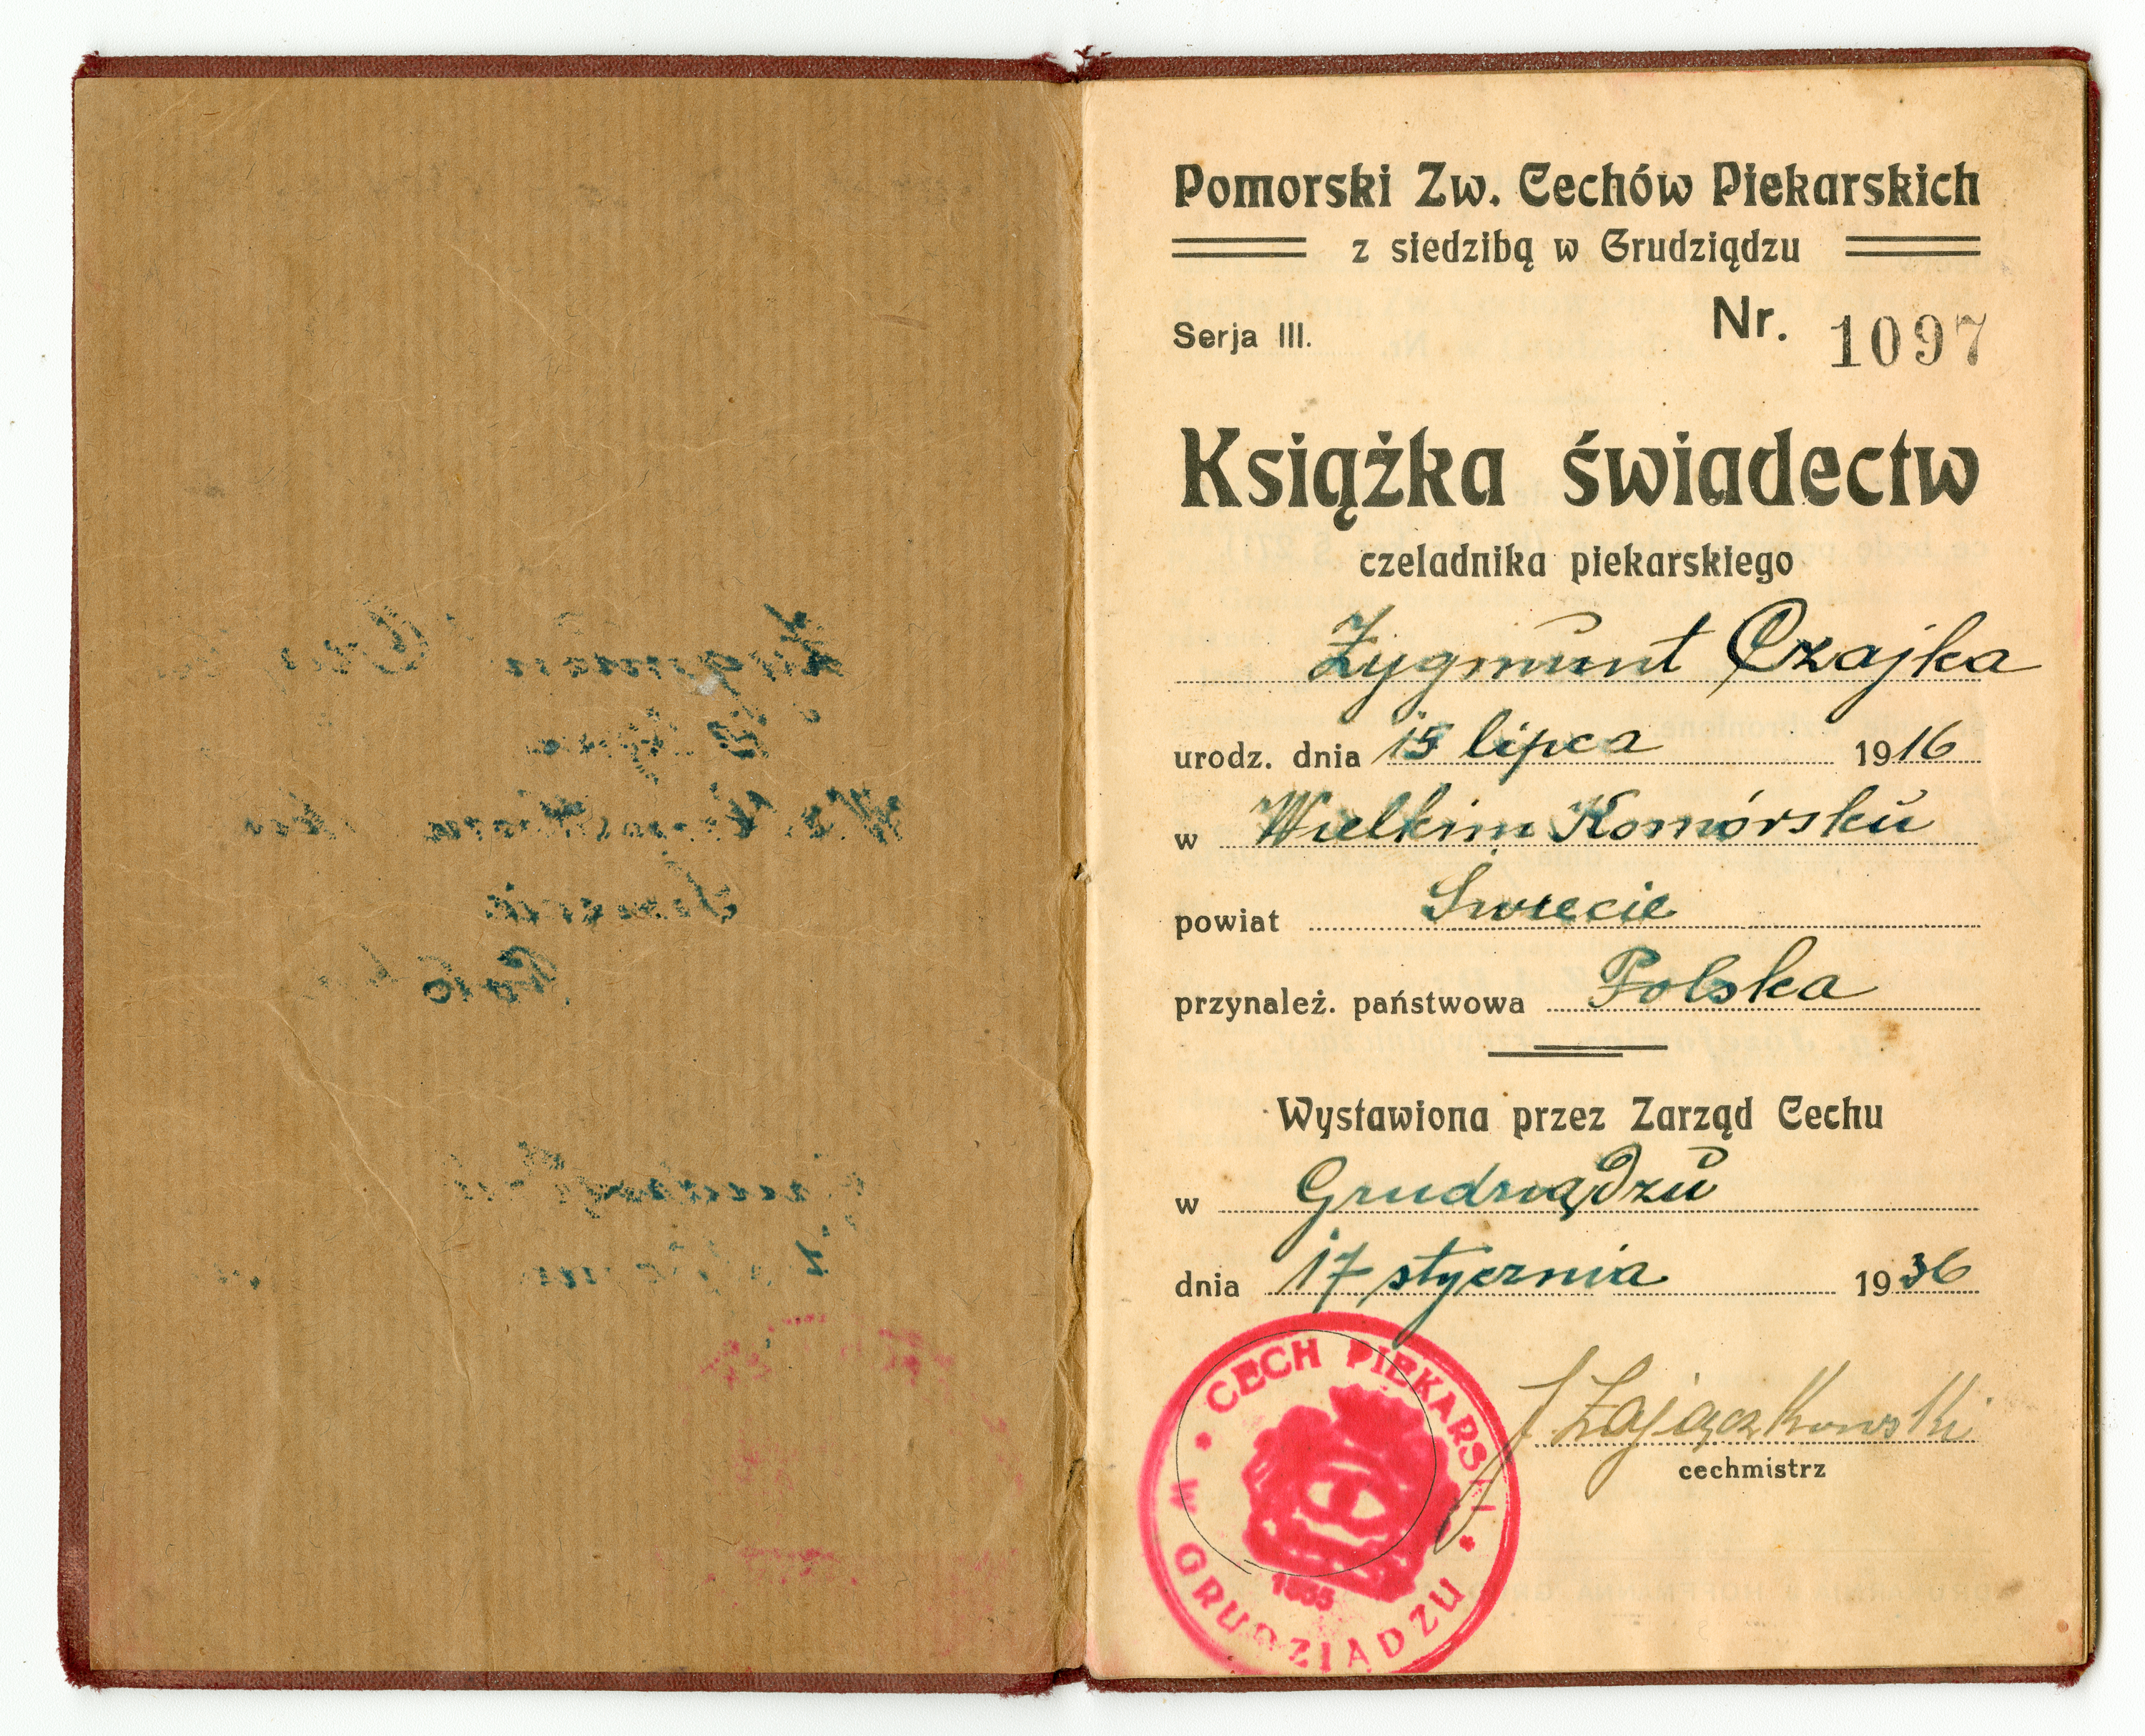 Pomorski Zw. Cechów Piekarskich
z siedzibą w Grudziądzu
Serja III. Nr. 1097
Książka świadectw
czeladnika piekarskiego
Zygmunt Czajka
urodz. dnia 15 lipca 1916
w Wielkim Komórsku
powiat Świecie
przynależ. państwowa Polska
Wystawiona przez Zarząd Cechu
w Grudziądzu
dnia 17 stycznia 1936
J Zajączkowski
cechmistrz
CECH PIEKARSKI
W GRUDZIĄDZU